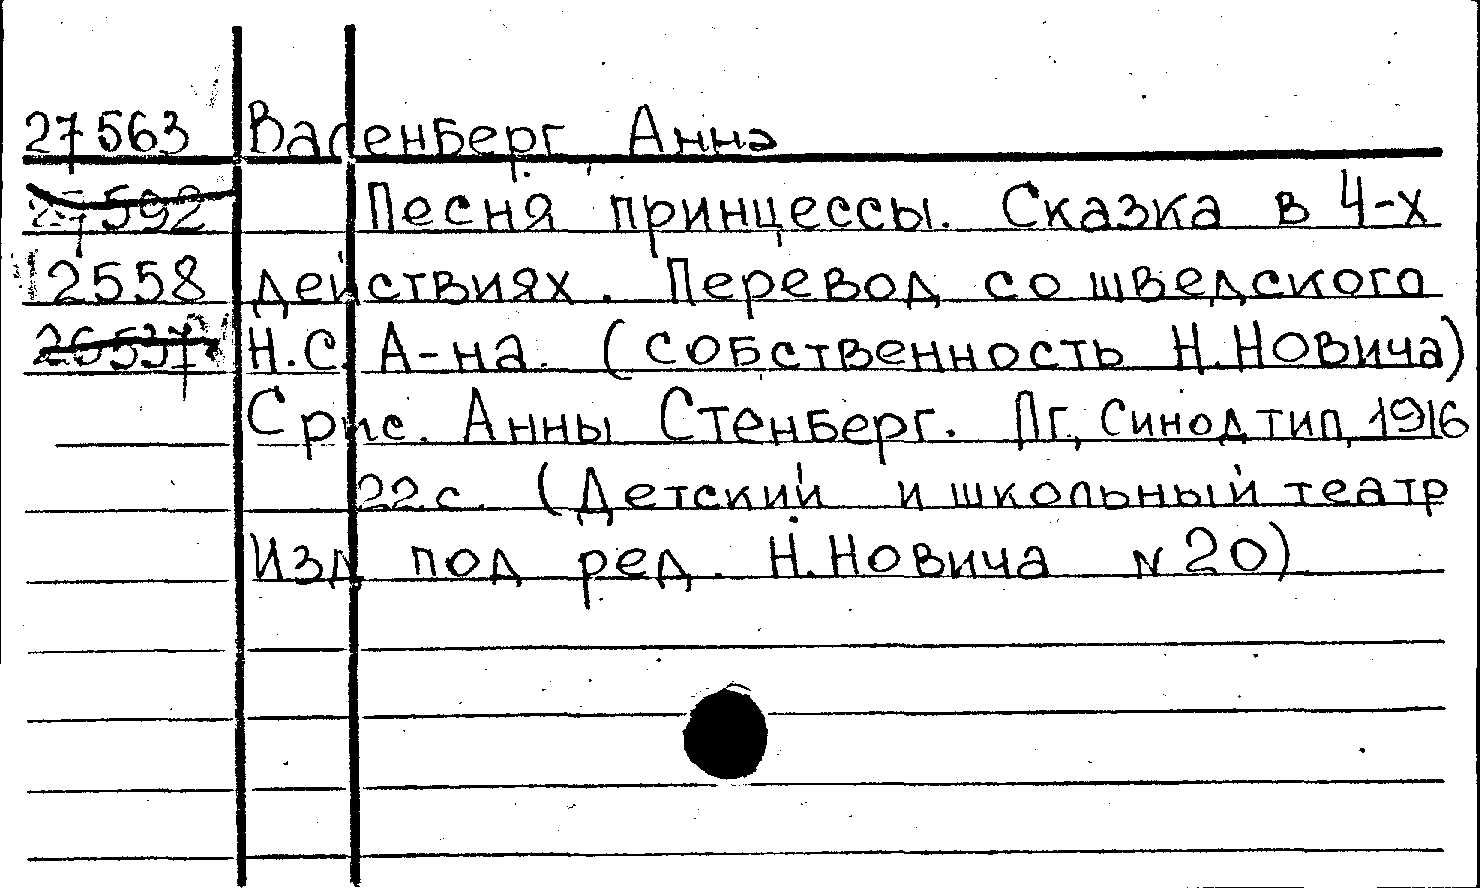 27563 Валенберг, Анна
27592 Песня принцессы. Сказка в 4-х
12558 действиях. Перевод со шведского
26537 Н.С. А-на. (собственность Н.Новича)
С рис. Анны Стенберг. Пг, Синод тип, 1916
22 с. (Детский и школьный театр
Изд под ред. Н.Новича N 20)